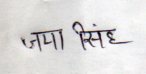 जया सिंह